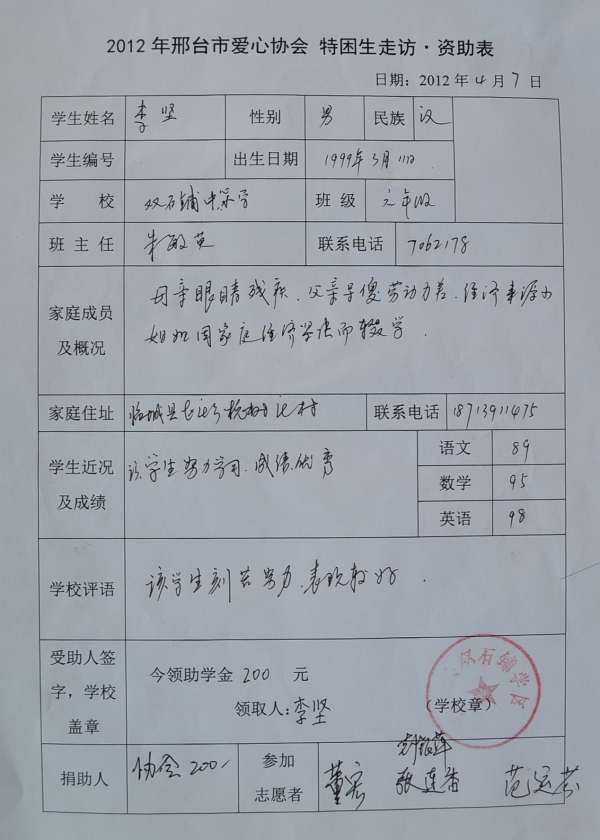 2012年邢台市爱心协会 特困生走访·资助表
日期：2012年4月7日
学生姓名 李坚 性别 男 民族 汉
学生编号 出生日期 1999年3月11日
学 校 双石铺中学 班 级 六年级
班 主 任 朱敏英 联系电话 7062178
家庭成员
及概况
母亲眼睛残疾、父亲呆傻劳动力差、经济来源少
姐姐因家庭经济学费而辍学.
家庭住址 临城县 村 联系电话 18713911475
学生近况
及成绩
该学生努力学习、成绩优秀
语文 89
数学 95
英语 98
学校评语 该学生刻苦努力、表现较好.
受助人签
字，学校
盖章
今领助学金 200 元
领取人：李坚 （学校章）
双石铺学区
捐助人 协会 200
参加
志愿者
董宏 张连香 范运芬